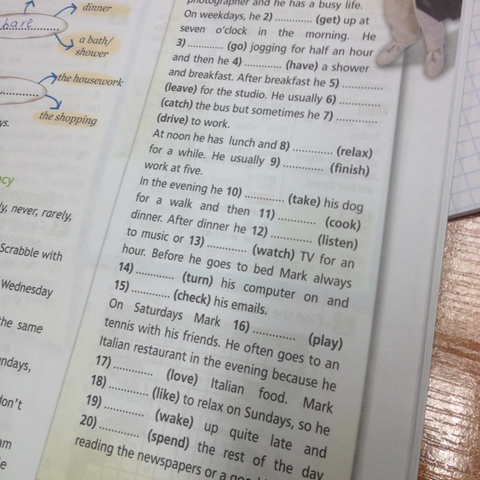 dinner
bare
a bath/
shower
the housework
the shopping
ys.
cy
ly, never, rarely,
Scrabble with
Wednesday
the same
undays,
don't
am
le
photographer and he has a busy life.
On weekdays, he 2) ............ (get) up at
seven o'clock in the morning. He
3) ............ (go) jogging for half an hour
and then he 4) ............ (have) a shower
and breakfast. After breakfast he 5) ............
(leave) for the studio. He usually 6) ............
(catch) the bus but sometimes he 7) ............
(drive) to work.
At noon he has lunch and 8) ............ (relax)
for a while. He usually 9) ............ (finish)
work at five.
In the evening he 10) ............ (take) his dog
for a walk and then 11) ............ (cook)
dinner. After dinner he 12) ............ (listen)
to music or 13) ............ (watch) TV for an
hour. Before he goes to bed Mark always
14) ............ (turn) his computer on and
15) ............ (check) his emails.
On Saturdays Mark 16) ............ (play)
tennis with his friends. He often goes to an
Italian restaurant in the evening because he
17) ............ (love) Italian food. Mark
18) ............ (like) to relax on Sundays, so he
19) ............ (wake) up quite late and
20) ............ (spend) the rest of the day
reading the newspapers or a